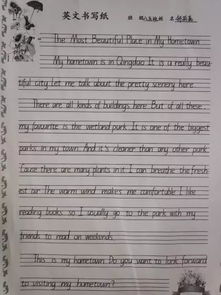 英文书写纸
The Most Beautiful Place in My Hometown
My hometown is in Qingdao. It is a really beau-
tiful city. let me talk about the pretty scenery here.
There are all kinds of buildings here. But of all these,
my favourite is the wetland park. It is one of the biggest
parks in my town. And it's cleaner than any other park.
'Cause there are many plants in it. I can breathe the fresh-
est air. The warm wind makes me comfortable. I like
reading books, so I usually go to the park with my
friends to read on weekends.
This is my hometown. Do you want to look forward
to visiting my hometown?